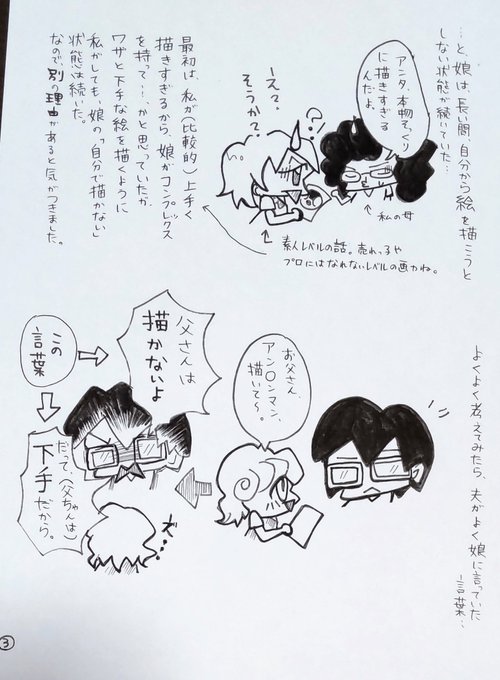 …と、娘は、長い間、自分から絵を描こうと
しない状態が続いていた…
アンタ、本物そっくり
に描きすぎる
んだよ、
←私の母
えー？
そうか？
？
最初は、私が(比較的)上手く
描きすぎるから、娘がコンプレックス
を持って…、かと思っていたが、
ワザと下手な絵を描くように
私がしても、娘の「自分で描かない」
状態は続いた。
なので別の理由があると気がつきました。
素人レベルの話。売れっ子や
プロにはなれないレベルの画力ね。
よくよく考えてみたら、夫がよく娘に言っていた
言葉…
お父さん、
アン〇ンマン、
描いて〜。
父さんは
描かないよ
この
言葉
だって、(父ちゃんは)
下手だから。
え…
③